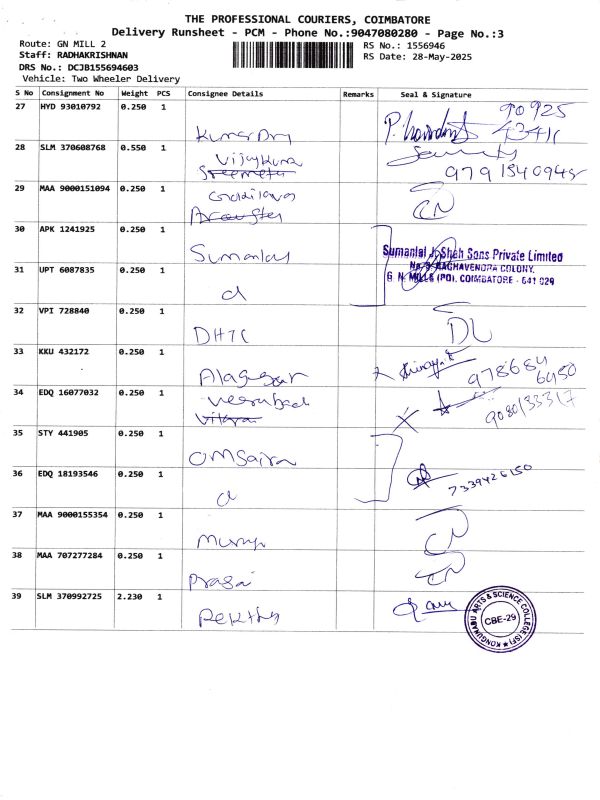 THE PROFESSIONAL COURIERS, COIMBATORE
Delivery Runsheet - PCM - Phone No.:9047080280 - Page No.:3
Route: GN MILL 2
RS No.: 1556946
Staff: RADHAKRISHNAN
RS Date: 28-May-2025
DRS No.: DCJB155694603
Vehicle: Two Wheeler Delivery
S No Consignment No Weight PCS Consignee Details Remarks Seal & Signature
27 HYD 93010792 0.250 1
90925
43411
28 SLM 370608768 0.550 1
Vijaykuma
29 MAA 9000151094 0.250 1
CN
30 APK 1241925 0.250 1
Sumanlal
Sumanlal J. Shah Sons Private Limited
No. 9, RAGHAVENDRA COLONY,
G. N. MILLS (PO), COIMBATORE - 641 029
31 UPT 6087835 0.250 1
d
32 VPI 728840 0.250 1
DHTC
DL
33 KKU 432172 0.250 1
Alagesar
978684
6450
34 EDQ 16077032 0.250 1
9080133317
35 STY 441905 0.250 1
OMSaira
36 EDQ 18193546 0.250 1
d
7339426150
37 MAA 9000155354 0.250 1
CN
38 MAA 707277284 0.250 1
CN
39 SLM 370992725 2.230 1
KONGUNADU ARTS & SCIENCE COLLEGE (SF)
CBE-29